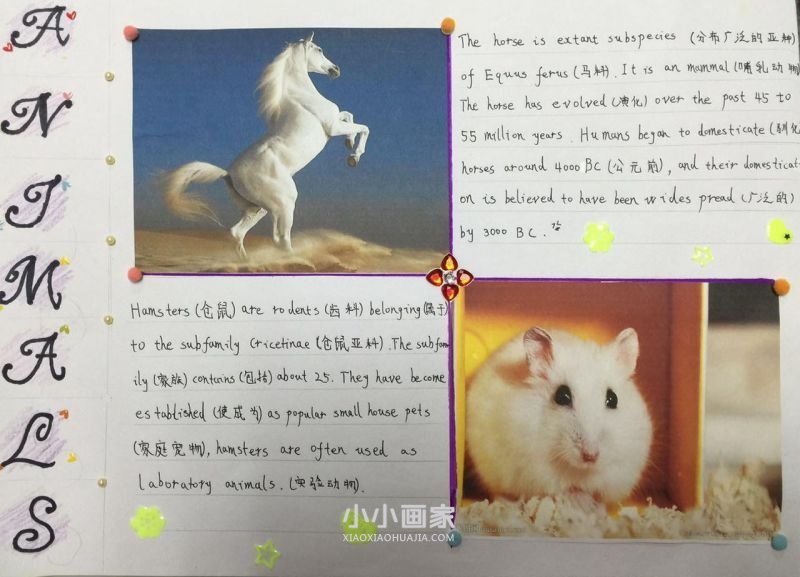 ANIMALS
The horse is extant subspecies (分布广泛的亚种)
of Equus ferus (马科). It is an mammal (哺乳动物)
The horse has evolved (演化) over the past 45 to
55 million years. Humans began to domesticate (驯化
horses around 4000 BC (公元前), and their domesticati
on is believed to have been wides pread (广泛的)
by 3000 BC.
Hamsters (仓鼠) are rodents (齿科) belonging (属于)
to the subfamily Cricetinae (仓鼠亚科). The subfam
ily (家族) contains (包括) about 25. They have become
es tablished (使成为) as popular small house pets
(家庭宠物), hamsters are often used as
laboratory animals. (实验动物).
小小画家
XIAOXIAOHUAJIA.COM